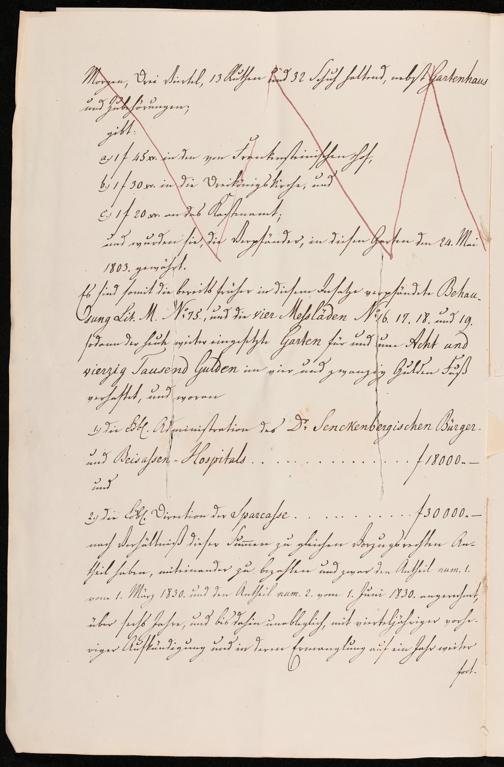 Morgen, Drei Viertel, 13 Ruthen und 32 Schuh haltend, nebst Gartenhaus
und Zubehörungen;
gibt:
a) 1 f 45 xr. in den von Frankensteinischen Hof,
b) 1 f 30 xr. in die Dreikönigskirche, und
c) 1 f 20 xr. an das Kastenamt;
und wurden sie, die Verpfänder, in diesen Garten den 24. Mai
1803. gewährt.
Es sind somit die bereits früher in diesem Insatze verpfändete Behau-
sung Lit. M. No 75, und die vier Messläden No 16. 17. 18. und 19.
sodann der heute weiter eingesetzte Garten für und um Acht und
vierzig Tausend Gulden im vier und zwanzig Gulden Fuß
verhaftet, und woran
1) die Löbl. Administration des Dr. Senckenbergischen Bürger-
und Beisassen-Hospitals . . . . . . . . . . . f 18000.—
und
2) die Löbl. Direction der Sparcasse . . . . . . . . . f 30000.—
nach Verhältniß dieser Summen zu gleichen Vorzugsrechten An-
theil haben, miteinander zu bezahlen und zwar den Antheil num. 1.
vom 1. März 1830. und den Antheil num. 2. vom 1. Juni 1830. angerechnet,
über sechs Jahre, und bis dahin unableglich, mit vierteljähriger vorhe-
riger Aufkündigung und in deren Ermanglung auf ein Jahr weiter
fort.